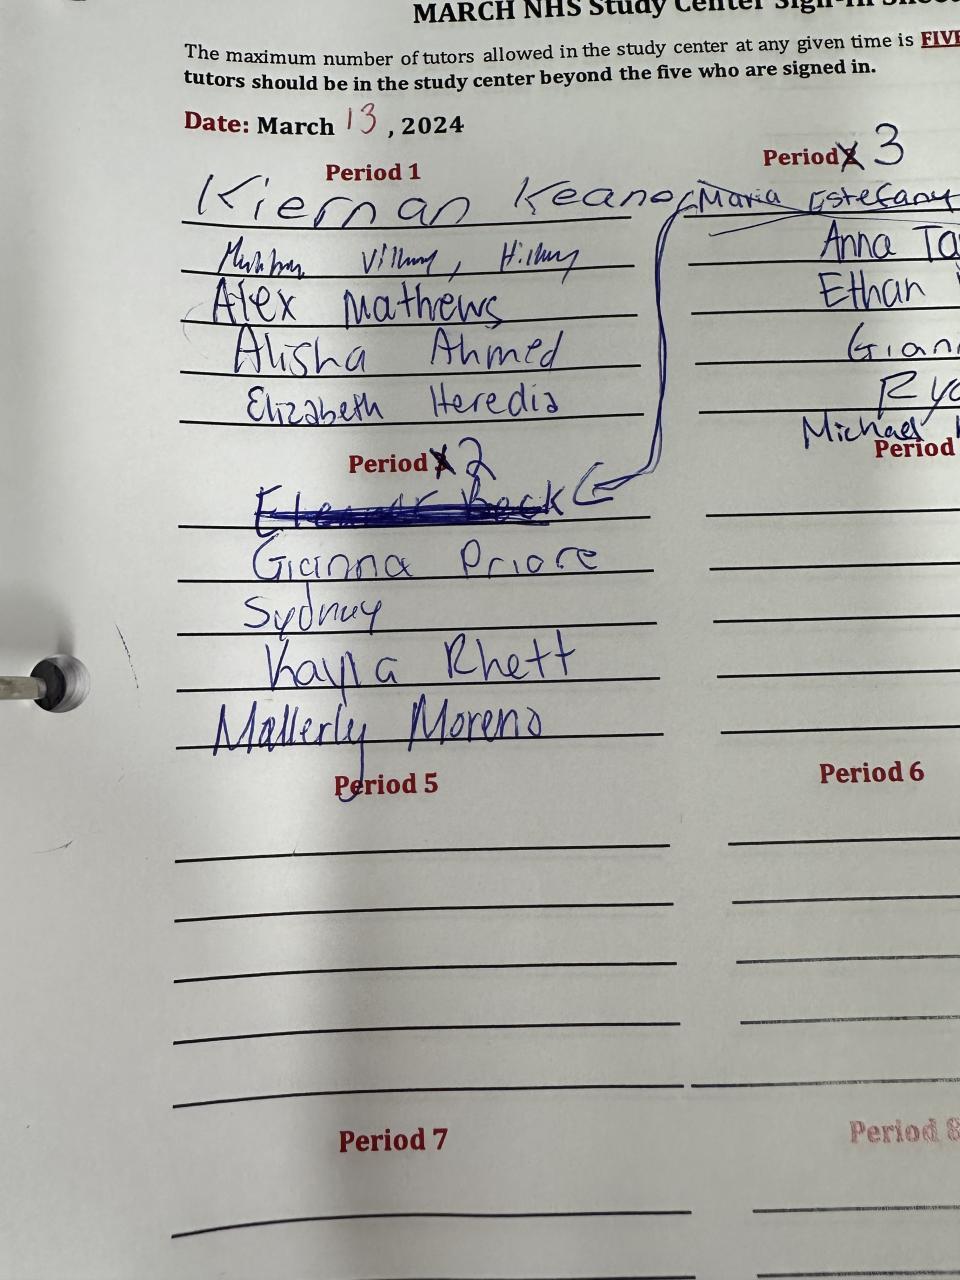 MARCH NHS Study Center Sign-In Sheet
The maximum number of tutors allowed in the study center at any given time is FIVE
tutors should be in the study center beyond the five who are signed in.
Date: March 13, 2024
Period 1
Kiernan Keane
Alex Mathews
Alisha Ahmed
Elizabeth Heredia
Period 2
Beck
Gianna Priore
Sydney
Kayla Rhett
Mallerly Moreno
Period 5
Period 7
Period 3
Maria Estefany
Anna Ta
Ethan
Giann
Rya
Michael
Period
Period 6
Period 8